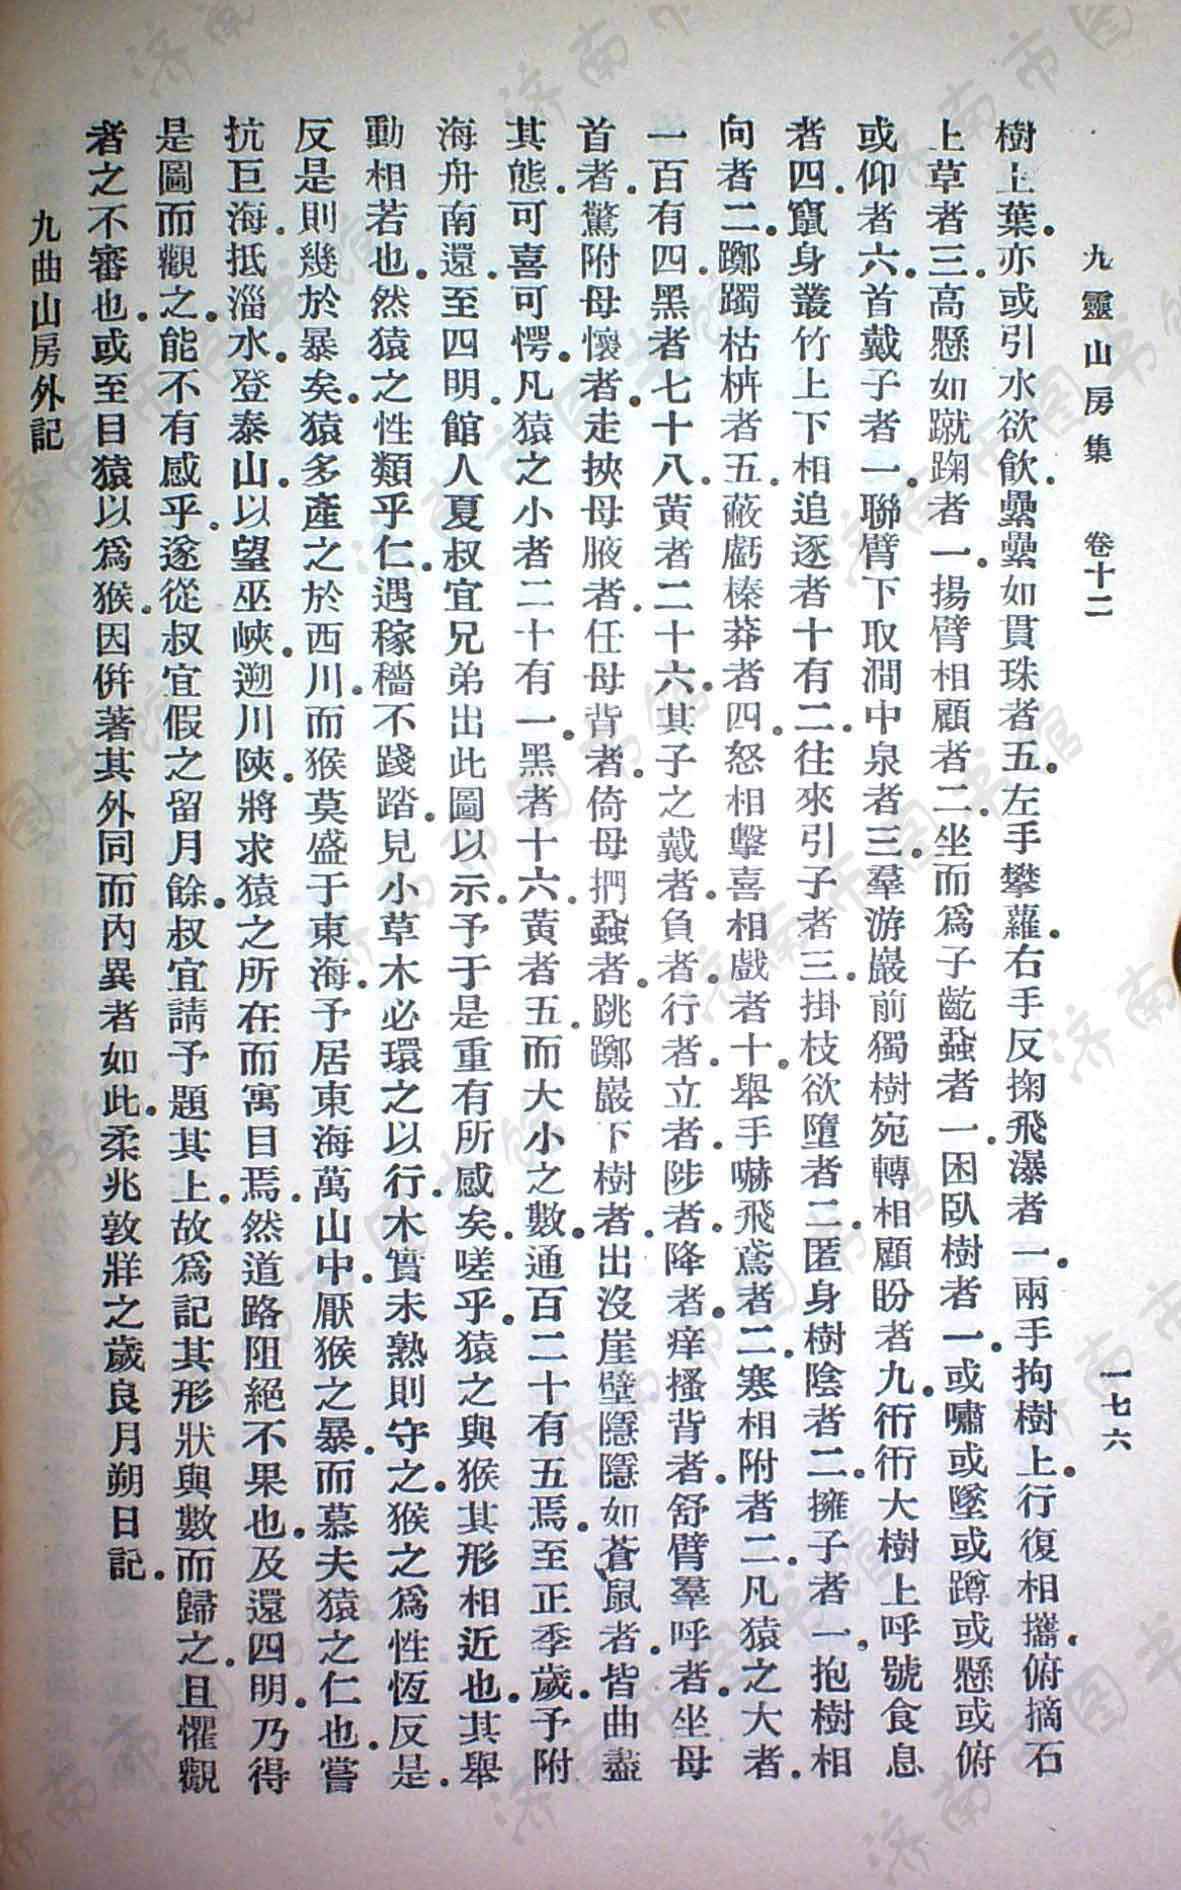 九靈山房集　卷十二　一七六
樹上葉。亦或引水欲飲。纍纍如貫珠者五。左手攀蘿。右手反掬飛瀑者一。兩手拘樹上。行復相攜。俯摘石
上草者三。高懸如蹴踘者一。揚臂相顧者二。坐而爲子齕蝨者一。困臥樹者一。或嘯或墜或蹲或懸或俯
或仰者六。首戴子者一。聯臂下取澗中泉者三。羣游巖前獨樹宛轉相顧盼者九。衎衎大樹上呼號食息
者四。竄身叢竹上下相追逐者十有二。往來引子者三。掛枝欲墮者二。匿身樹陰者二。擁子者一。抱樹相
向者二。躑躅枯枿者五。蔽虧榛莽者四。怒相擊喜相戲者十。舉手嚇飛鳶者二。寒相附者二。凡猿之大者。
一百有四。黑者七十八。黃者二十六。其子之戴者。負者。行者。立者。陟者。降者。痒搔背者。舒臂羣呼者。坐母
首者。驚附母懷者。走挾母腋者。任母背者。倚母捫蝨者。跳躑巖下樹者。出沒崖壁隱隱如蒼鼠者。皆曲盡
其態。可喜可愕。凡猿之小者二十有一。黑者十六。黃者五。而大小之數。通百二十有五焉。至正季歲。予附
海舟南還。至四明。館人夏叔宜兄弟出此圖以示。予于是重有所感矣。嗟乎。猿之與猴。其形相近也。其舉
動相若也。然猿之性類乎仁。遇稼穡不踐踏。見小草木必環之以行。木實未熟則守之。猴之爲性恆反是。
反是則幾於暴矣。猿多產之於西川。而猴莫盛于東海。予居東海萬山中。厭猴之暴。而慕夫猿之仁也。嘗
抗巨海。抵淄水。登泰山。以望巫峽。遡川陝。將求猿之所在而寓目焉。然道路阻絕不果也。及還四明。乃得
是圖而觀之。能不有感乎。遂從叔宜假之。留月餘。叔宜請予題其上。故爲記其形狀與數而歸之。且懼觀
者之不審也。或至目猿以爲猴。因倂著其外同而內異者如此。柔兆敦牂之歲良月朔日記。
九曲山房外記